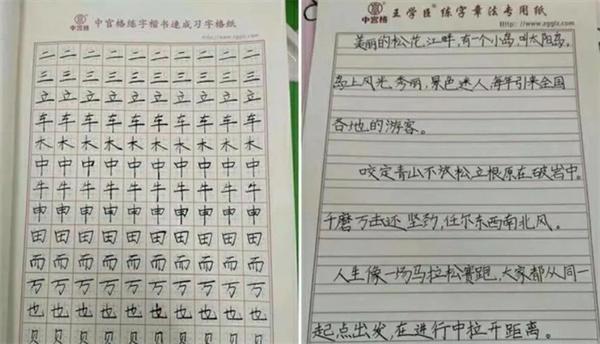 中宫格
中宫格练字楷书速成习字格纸
二二二二二二二二二
三三三三三三三三三
立立立立立立立立立
车车车车车车车车车
木木木木木木木木木
中中中中中中中中中
牛牛牛牛牛牛牛牛牛
申申申申申申申申申
田田田田田田田田田
而而而而而而而而而
万万万万万万万万万
也也也也也也也也也
贝贝贝贝贝贝贝贝贝
中宫格
王学臣® 练字章法专用纸
Http://www.zgglx.com
美丽的松花江畔,有一个小岛,叫太阳岛。
岛上风光秀丽,景色迷人,每年引来全国
各地的游客。
咬定青山不放松,立根原在破岩中。
千磨万击还坚劲,任尔东西南北风。
人生像一场马拉松赛跑,大家都从同一
起点出发,在进行中拉开距离。